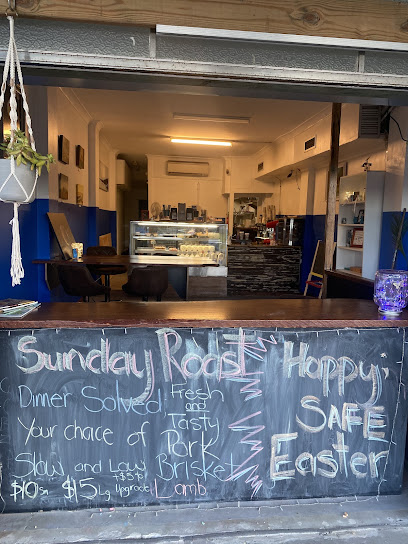 Sunday Roast
Dinner Solved, Fresh
and
Your choice of Tasty
Pork
Slow and Low Brisket
+$5 to
$10 sm $15 Lg Upgrade Lamb
Happy,
SAFE
Easter